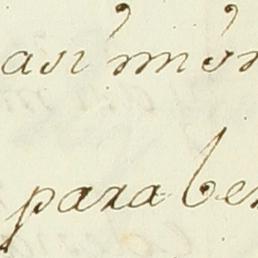 asi mis
para ber